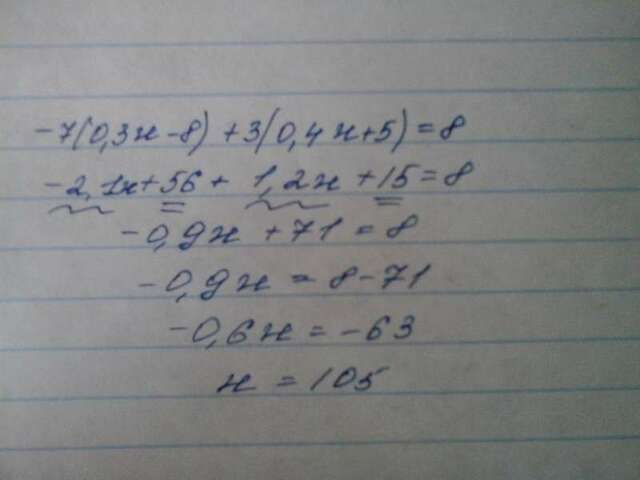 -7(0,3x-8)+3(0,4x+5)=8
-2,1x+56+1,2x+15=8
-0,9x+71=8
-0,9x=8-71
-0,6x=-63
x=105